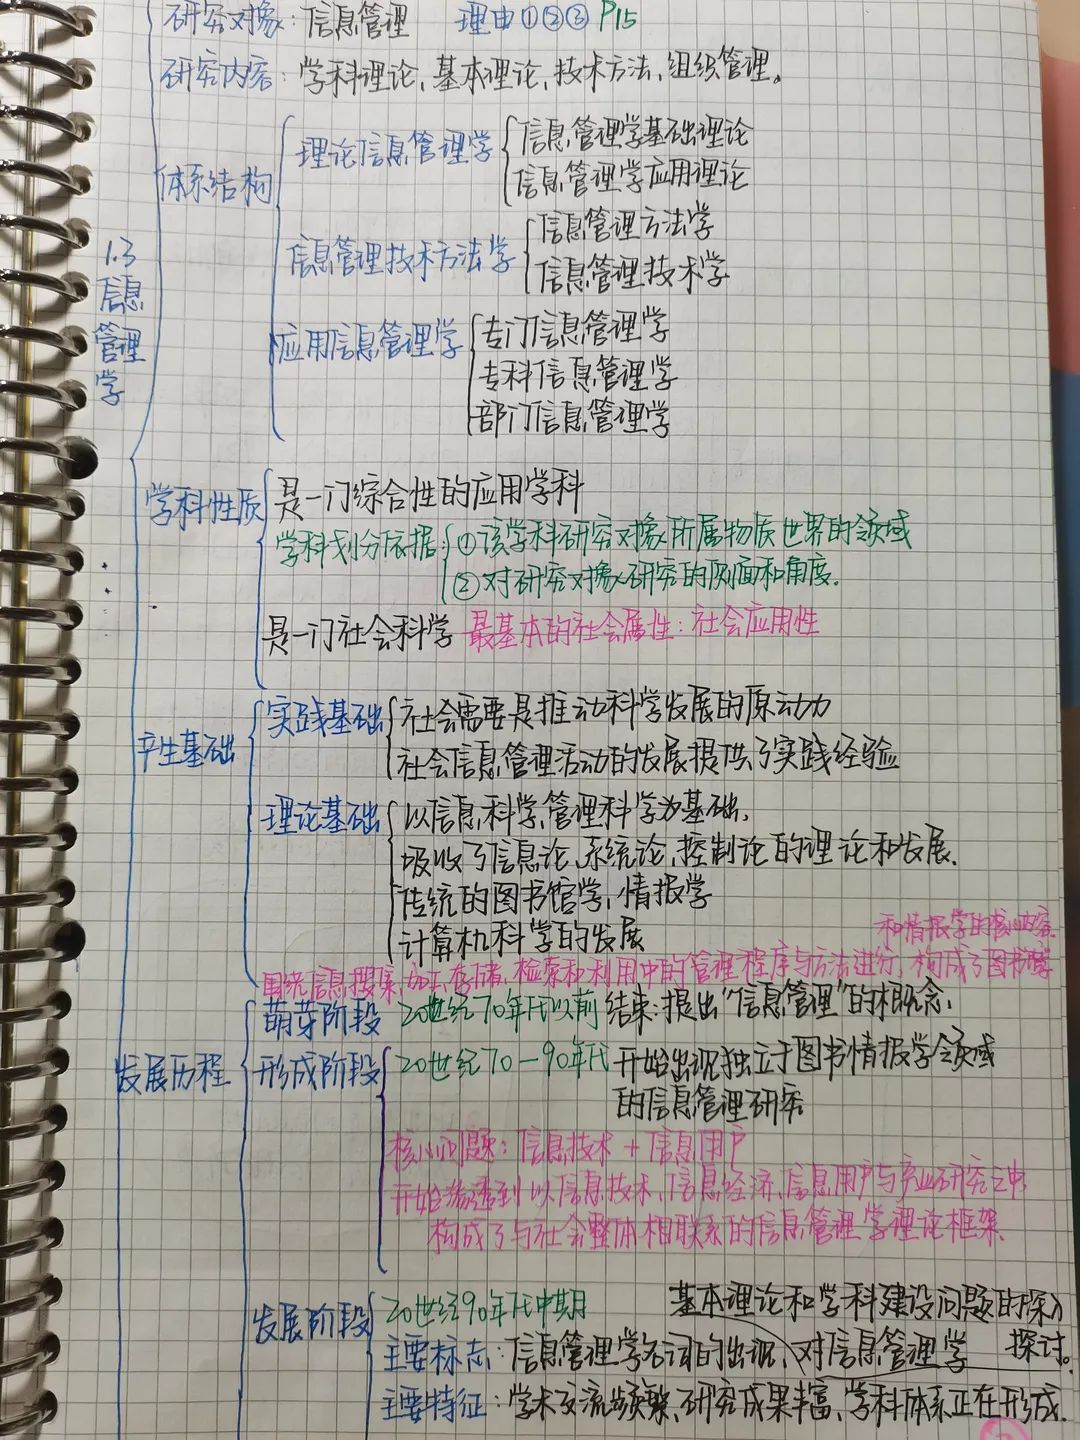 研究对象：信息管理 理由①②③ P15
研究内容：学科理论、基本理论、技术方法、组织管理。
1.3 信息管理学
体系结构
理论信息管理学
信息管理学基础理论
信息管理学应用理论
信息管理技术方法学
信息管理方法学
信息管理技术学
应用信息管理学
专门信息管理学
专科信息管理学
部门信息管理学
学科性质
是一门综合性的应用学科
学科划分依据：①该学科研究对象所属物质世界的领域
②对研究对象研究的侧面和角度.
是一门社会科学 最基本的社会属性：社会应用性
产生基础
实践基础
社会需要是推动科学发展的原动力
社会信息管理活动的发展提供了实践经验
理论基础
以信息科学、管理科学为基础，
吸收了信息论、系统论、控制论的理论和发展.
传统的图书馆学，情报学
计算机科学的发展
围绕信息搜集、加工、存储、检索和利用中的管理程序与方法进行，构成了图书馆学
和情报学的核心内容.
发展历程
萌芽阶段 20世纪70年代以前 结束：提出“信息管理”的概念.
形成阶段 20世纪70-90年代 开始出现独立于图书情报学领域
的信息管理研究
核心问题：信息技术+信息用户
开始渗透到以信息技术、信息经济、信息用户与产业研究之中
构成了与社会整体相联系的信息管理学理论框架.
发展阶段 20世纪90年代中期
主要标志：信息管理学名词的出现、对信息管理学
基本理论和学科建设问题的深入
探讨。
主要特征：学术交流频繁、研究成果丰富、学科体系正在形成.